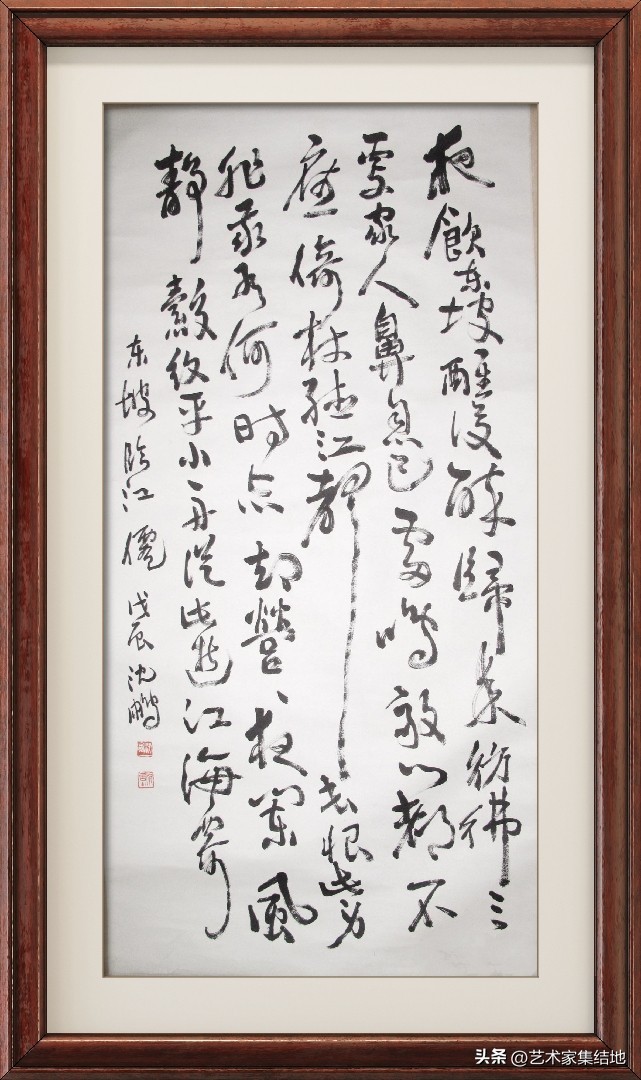 夜飲东坡醒復醉歸来彷彿三
更家人鼻息已雷鳴敲门都不
應倚杖聽江聲长恨此身
非我有何时忘却營〻夜闌風
静縠纹平小舟從此逝江海寄
东坡临江僊 戊辰沈鹏
头条 @艺术家集结地